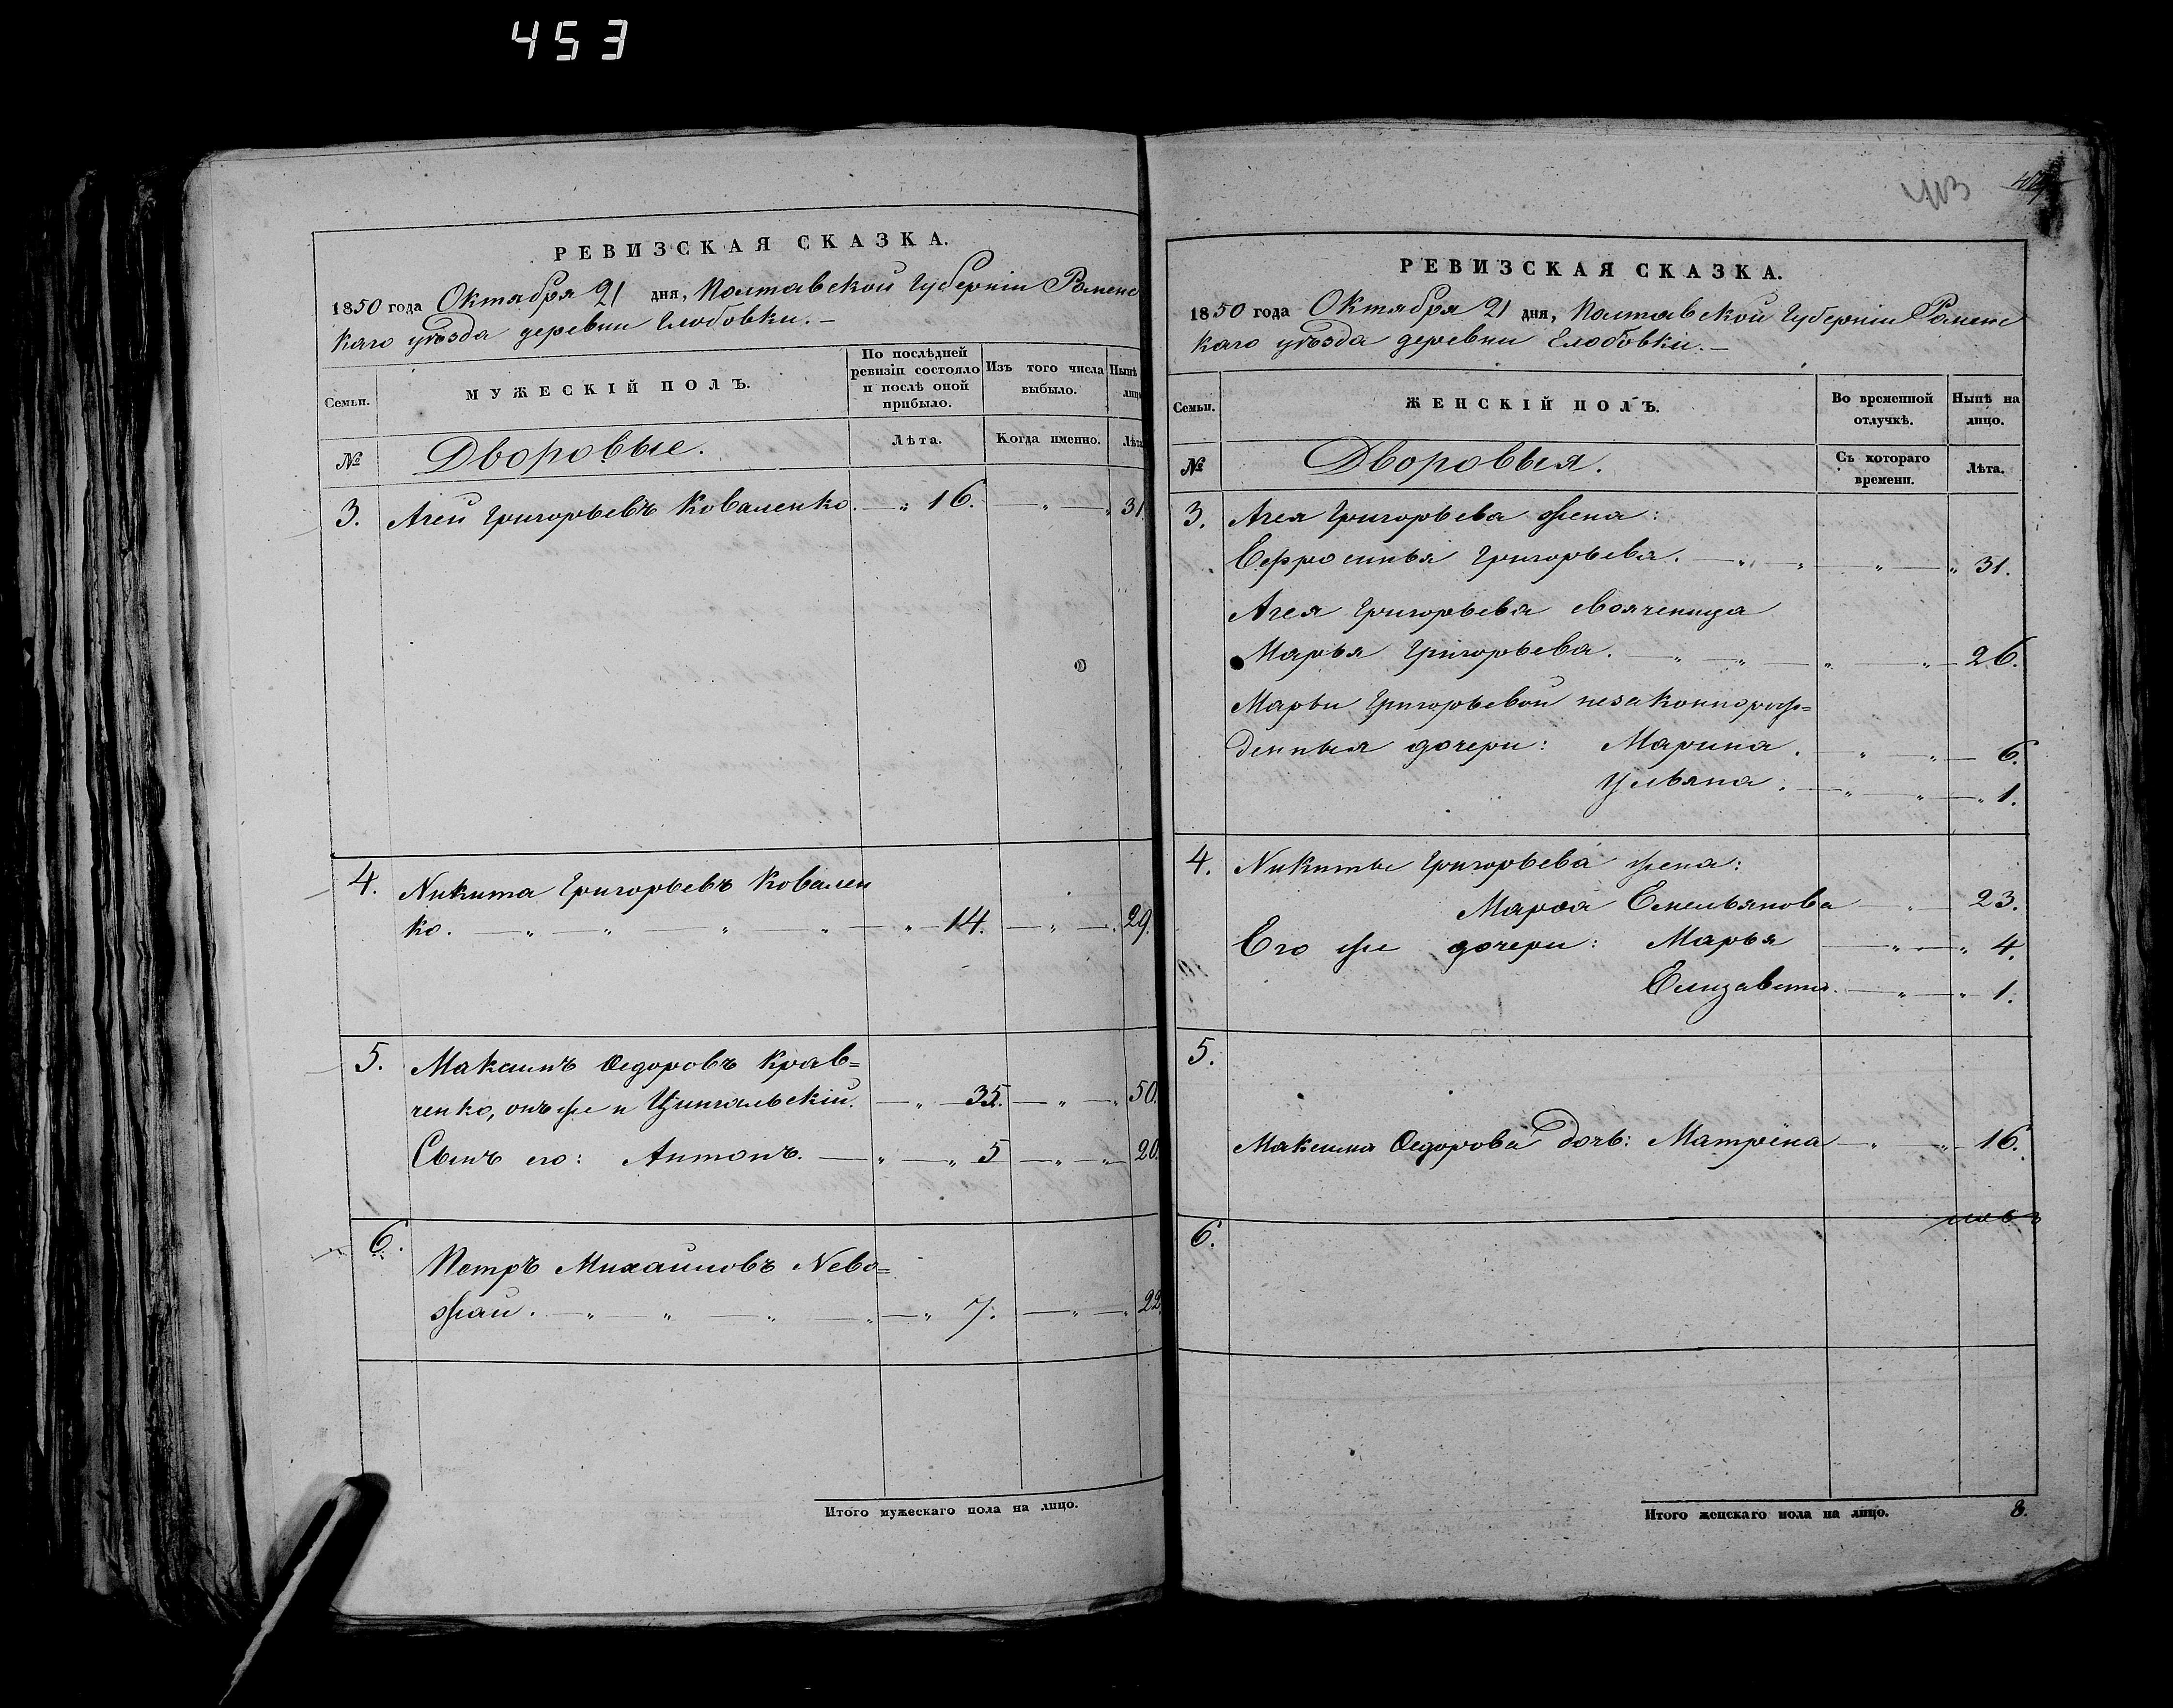 453
РЕВИЗСКАЯ СКАЗКА.
1850 года Октября 21 дня, Полтавской Губерніи Роменс
каго уѣзда деревни Глобовки.
Семьи.
МУЖЕСКІЙ ПОЛЪ.
По послѣдней
ревизіи состояло
и послѣ оной
прибыло.
Изъ того числа
выбыло.
Нынѣ
лицо
№
Дворовые.
Лѣта.
Когда именно.
Лѣта
3. Агей Григорьевъ Коваленко. — „ 16. — „ — „ 31.
4. Никита Григорьевъ Ковален
ко. — „ „ „ „ — „ — 14. — „ — „ 29.
5. Максимъ Ѳедоровъ Крав=
ченко, онъ же и Цимгальскій. — „ — 35. — „ — „ 50.
Сынъ его: Антонъ. — „ — „ 5 — „ — „ 20.
6. Петръ Михайловъ Нево=
жай. — „ „ — „ — „ — „ 7. — „ — „ 22.
Итого мужескаго пола на лицо.
413
РЕВИЗСКАЯ СКАЗКА.
1850 года Октября 21 дня, Полтавской Губерніи Роменс
каго уѣзда деревни Глобовки.
Семьи.
ЖЕНСКІЙ ПОЛЪ.
Во временной
отлучкѣ.
Нынѣ на
лицо.
№
Дворовыя.
Съ котораго
времени.
Лѣта.
3. Агея Григорьева жена:
Ефросинья Григорьева. — „ „ — „ — „ 31.
Агея Григорьева своячепица
Марья Григорьева. — „ — „ — „ — „ — 26.
Марьи Григорьевой незаконнорож=
денныя дочери: Марина. — „ — „ — 6.
Ульяна. — „ — „ — „ 1.
4. Никиты Григорьева жена:
Марѳа Емельянова — „ — 23.
Его же дочери: Марья — „ — „ 4.
Елизавета. — „ — „ 1.
5.
Максима Ѳедорова дочь: Матрёна — „ — „ — 16.
6.
Итого женскаго пола на лицо. 8.